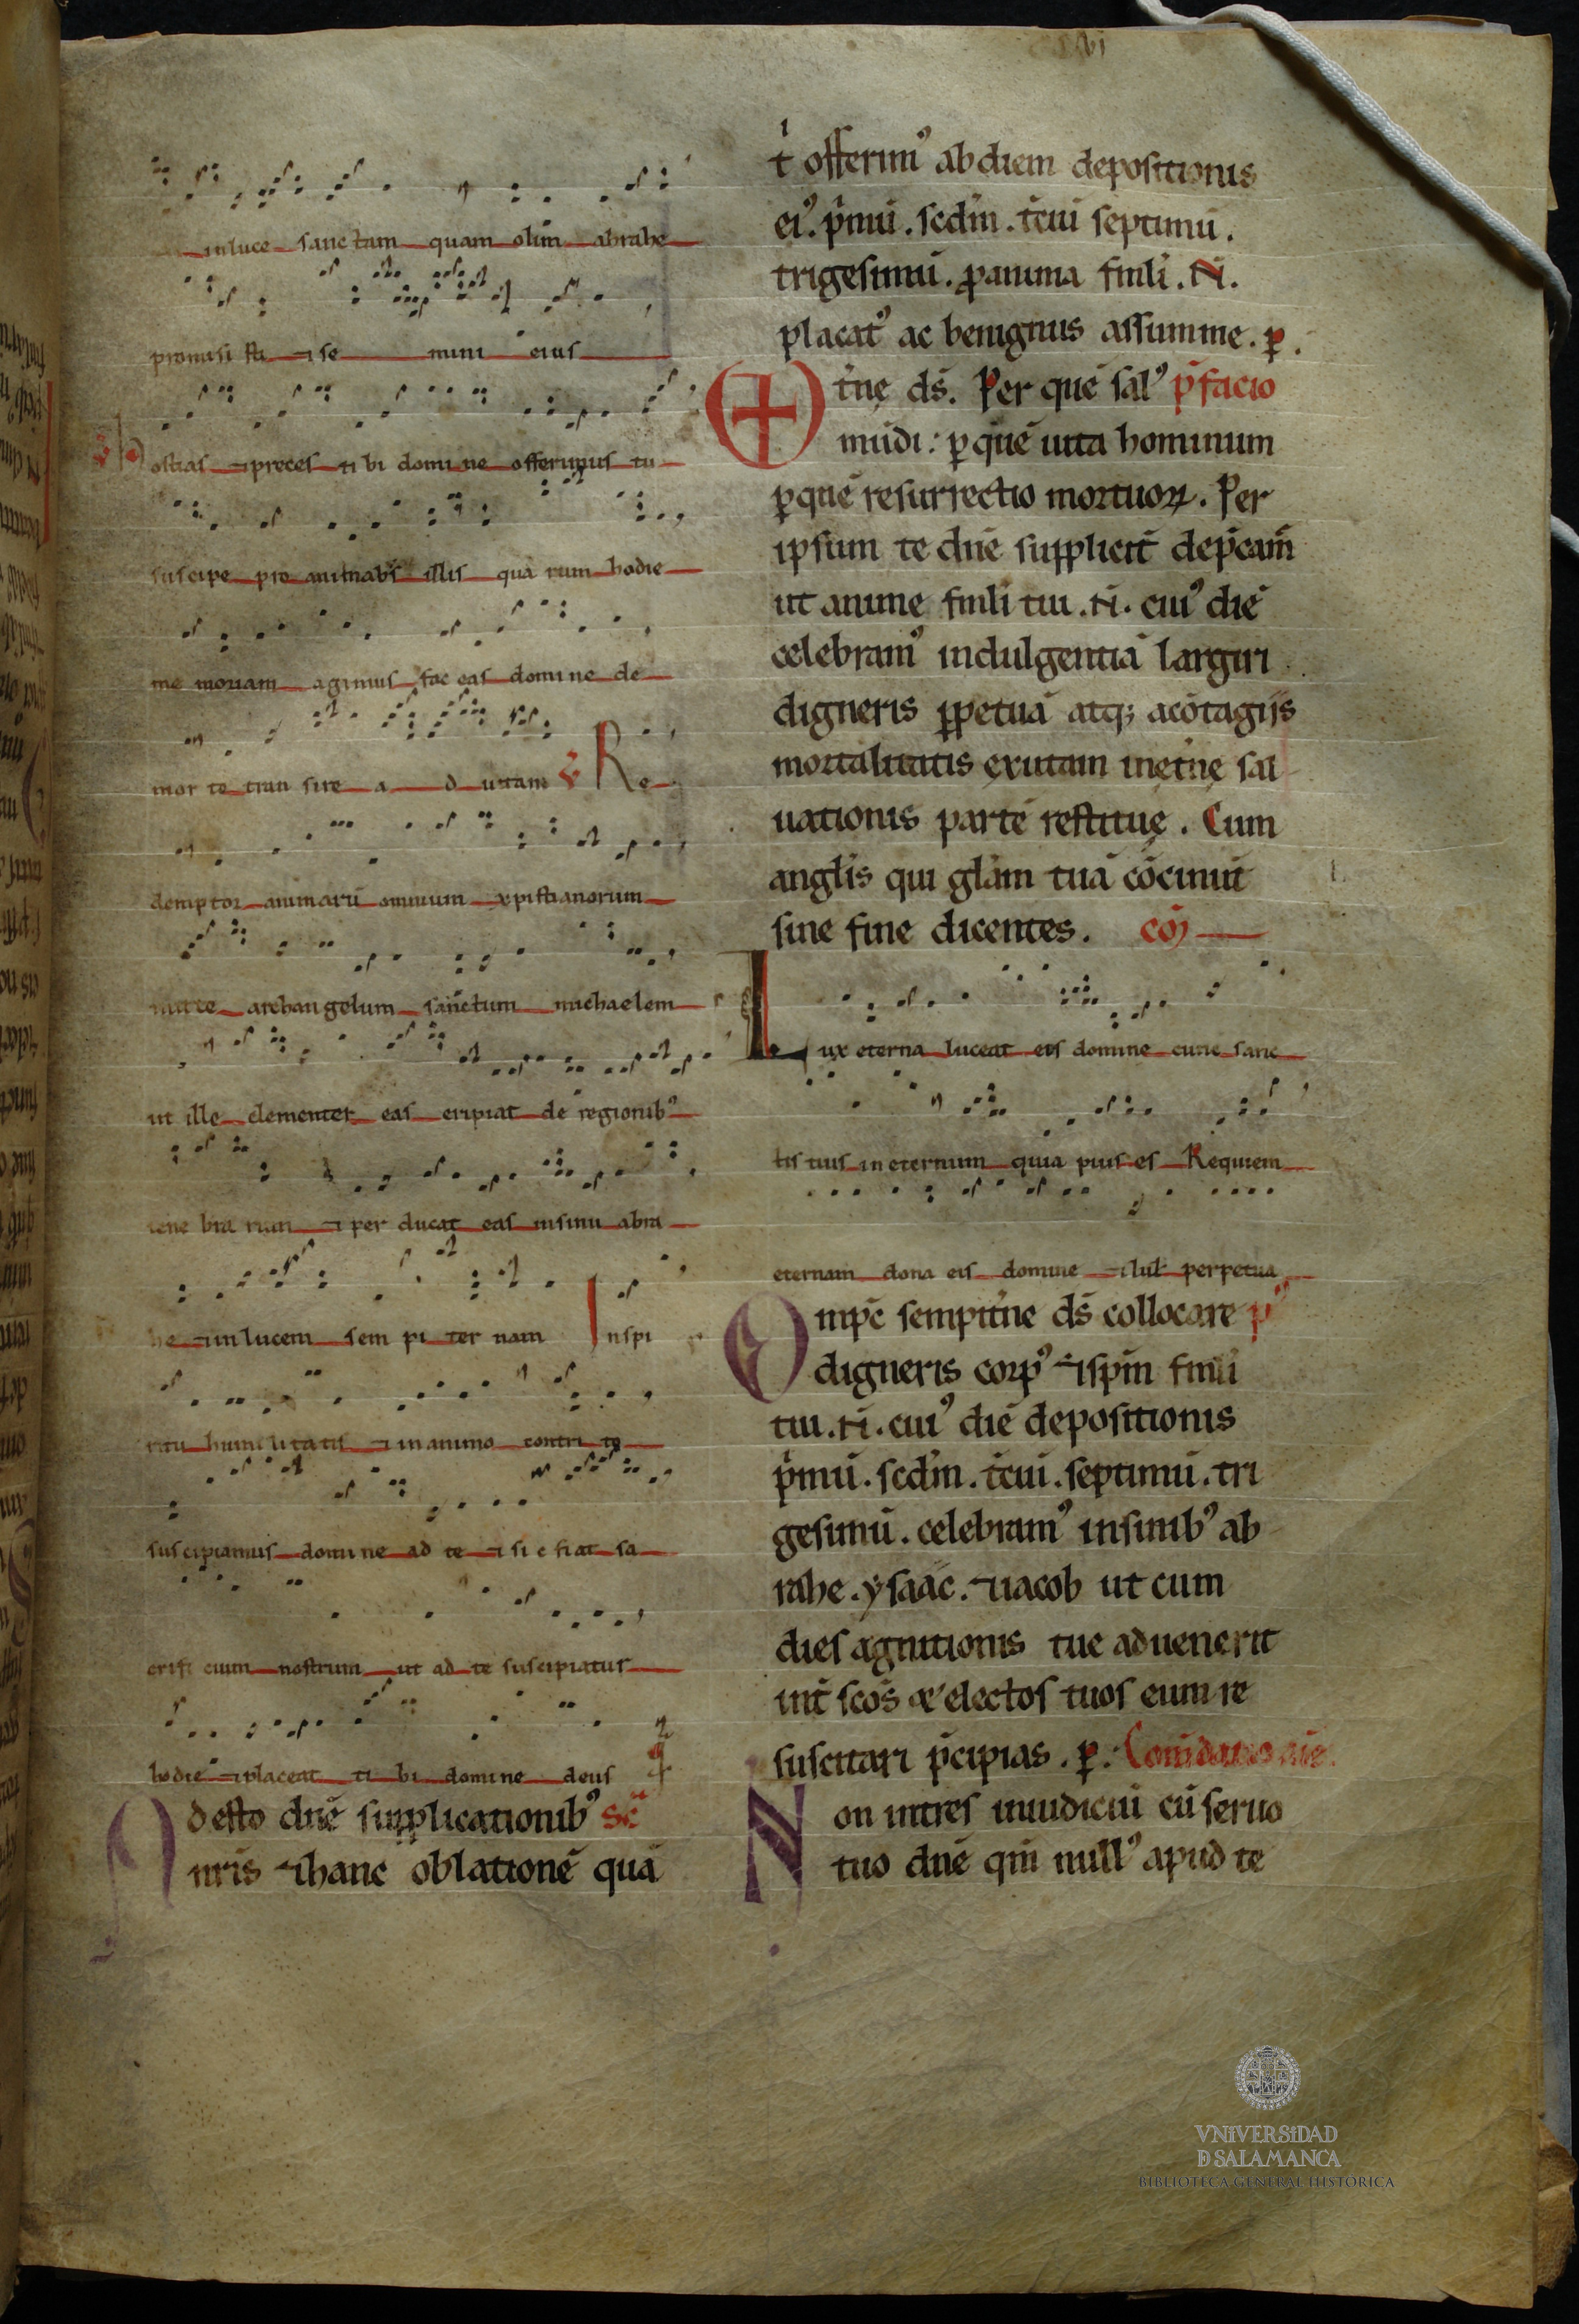 vi
inluce sanctam quam olim abrahe
promisi sti ⁊ se mini eius
v̄ Hostias ⁊ preces ti bi domine offerimus tu
suscipe pro animabꝰ illis quarum hodie
me moriam agimus fac eas domine de
mor te tran sire a d uitam v̄ Re
demptor animarū omnium xpistianorum
mitte archangelum sanctum michaelem
ut ille clementer eas eripiat de regionibꝰ
tene bra rum ⁊ per ducat eas insinu abra
he ⁊ inlucem sem pi ter nam Inspi
ritu humilitatis ⁊ inanimo contri to
suscipiamus domine ad te ⁊ si c fiat sa
crifi cium nostrum ut ad te suscipiatur
hodie ⁊ placeat ti bi domine deus
Adesto dn̄e supplicationibꝰ sē
nr̄is ⁊ hanc oblationē quā
t̍ offerimꝰ abdiem depositionis
eiꝰ. p̍mū. scdm̄. t̄ciū septimū.
trigesimū. ꝓanima fmli̍. N̄.
placatꝰ ac benignus assumme. ꝑ.
Et̍nę ds̄. Per quē salꝰ p̄facio
mūdi: ꝑquē uita hominum
ꝑquē resurrectio mortuoꝝ. Per
ipsum te dn̄e supplicit̄ dep̄cam̄
ut anime fmli̍ tui. N̄. cuiꝰ diē
celebramꝰ indulgentiā largiri
digneris ꝑpetuā atqꝫ acōtagijs
mortalitatis exutam inęt̍nę sal
uationis partē restituę. Cum
angl̍is qui gl̍am tuā cōcinūt
sine fine dicentes. cō
Lux eterna luceat eis domine cunc sanc
tis tuis in eternum quia pius es Requiem
eternam dona eis domine ⁊ lul perpetua
Omp̄c sempit̍ne ds̄ collocare p̄
digneris corpꝰ ⁊ sp̄m fmli̍
tui. N̄. cuiꝰ diē depositionis
p̍mū. scdm̄. t̄ciū. septimū. tri
gesimū. celebramꝰ insinibꝰ ab
rahe. ysaac. ⁊ iacob ut cum
dies agnitionis tue aduenerit
int̄ scōs & electos tuos eum re
suscitari p̄cipias. ꝑ. Com̄datio aīe
Non intres iniudiciū cū seruo
tuo dn̄e qm̄ nullꝰ apud te
VNIVERSIDAD
D SALAMANCA
BIBLIOTECA GENERAL HISTÓRICA